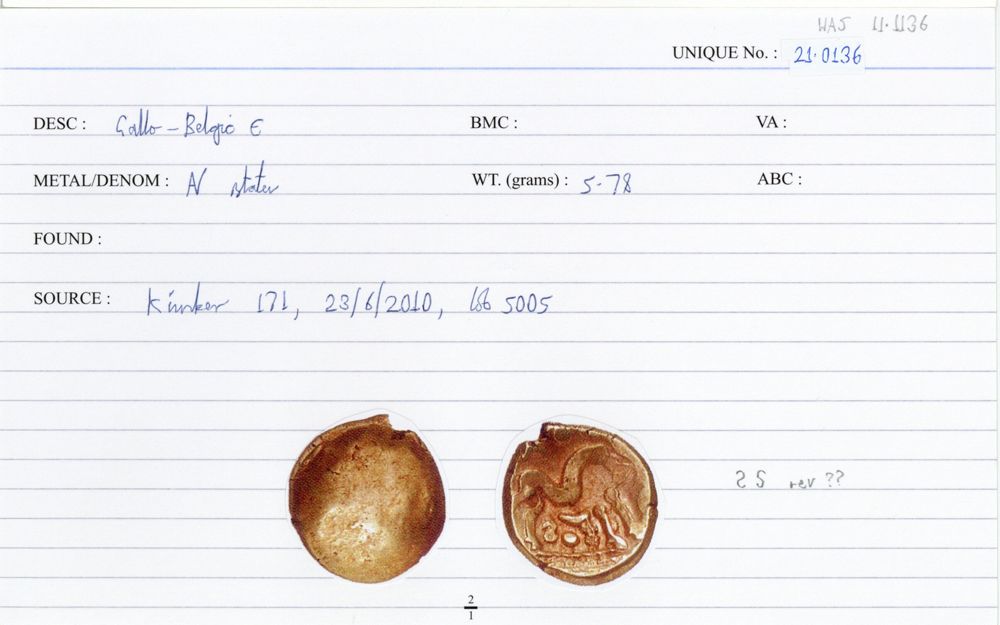 WAS 11.1136
UNIQUE No. : 21.0136
DESC : Gallo-Belgic E BMC : VA :
METAL/DENOM : AV stater WT. (grams) : 5.78 ABC :
FOUND :
SOURCE : Künker 171, 23/6/2010, lot 5005
S rev ??
2
1